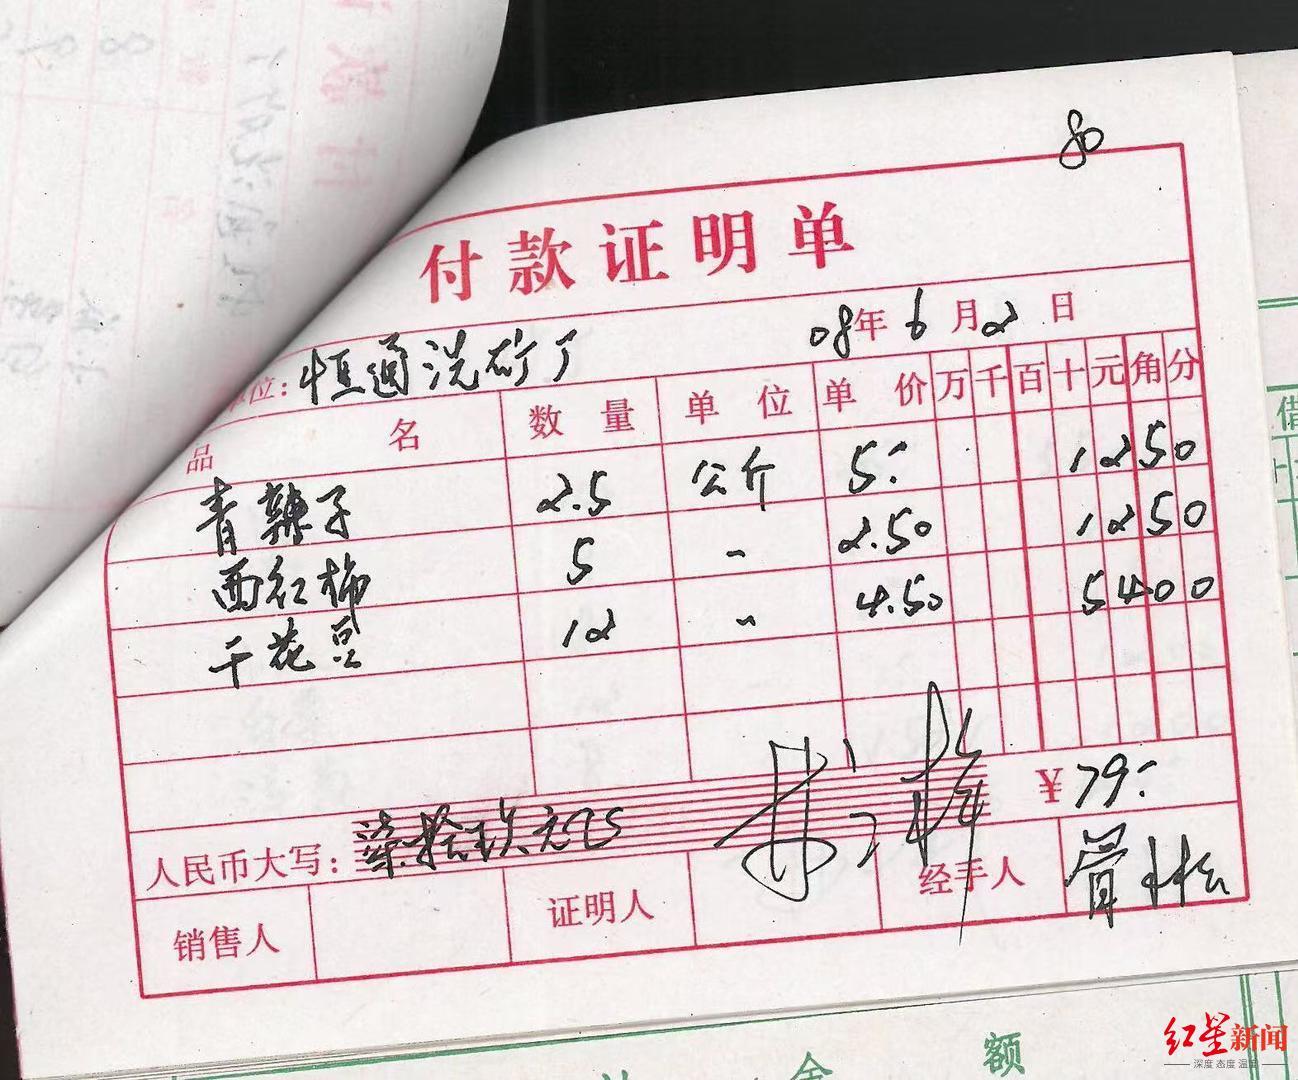 80
付款证明单
单位：恒通洗矿厂 08年6月2日
品名 数量 单位 单价 万 千 百 十 元 角 分
青辣子 2.5 公斤 5- 1 2 5 0
西红柿 5 〃 2.50 1 2 5 0
干花豆 12 〃 4.50 5 4 0 0
人民币大写：柒拾玖元 ¥79-
销售人 证明人 经手人 管
额
借
红星新闻
深度 态度 温度